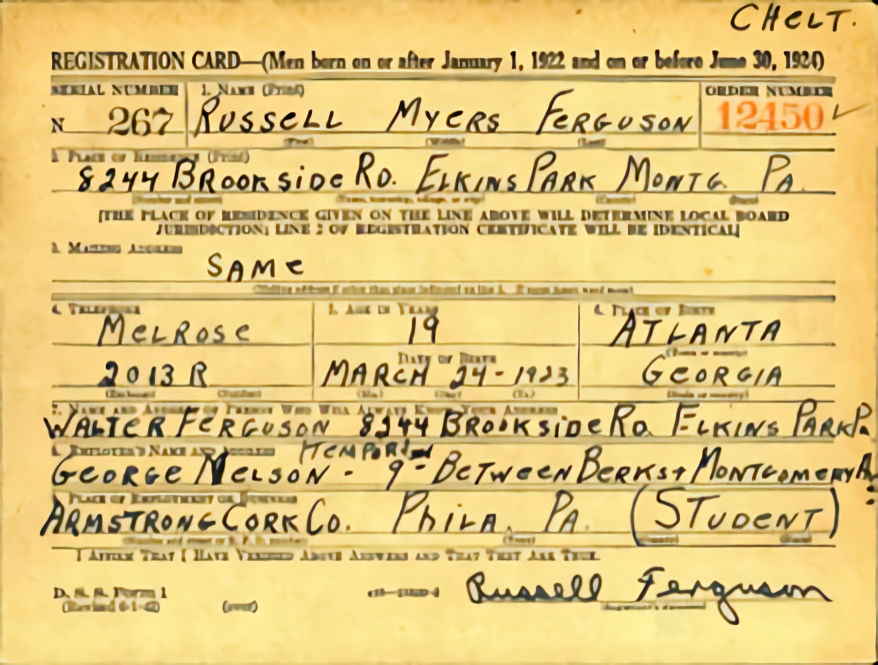 CHELT.
REGISTRATION CARD—(Men born on or after January 1, 1922 and on or before June 30, 1924)
SERIAL NUMBER 1. NAME (Print) ORDER NUMBER
N 267 RUSSELL MYERS FERGUSON 12450
(First) (Middle) (Last)
2. PLACE OF RESIDENCE (Print)
8244 BROOKSIDE RD. ELKINS PARK MONTG. PA.
(Number and street) (Town, township, village, or city) (County) (State)
[THE PLACE OF RESIDENCE GIVEN ON THE LINE ABOVE WILL DETERMINE LOCAL BOARD
JURISDICTION; LINE 2 OF REGISTRATION CERTIFICATE WILL BE IDENTICAL]
3. MAILING ADDRESS
SAME
4. TELEPHONE 5. AGE IN YEARS 6. PLACE OF BIRTH
MELROSE 19 ATLANTA
DATE OF BIRTH (Town or county)
2013 R MARCH 24-1923 GEORGIA
(Exchange) (Number) (Mo.) (Day) (Yr.) (State or country)
7. NAME AND ADDRESS OF PERSON WHO WILL ALWAYS KNOW YOUR ADDRESS
WALTER FERGUSON 8244 BROOKSIDE RD. ELKINS PARK PA.
8. EMPLOYER'S NAME AND ADDRESS
GEORGE NELSON - 9 - BETWEEN BERKS + MONTGOMERY AV
9. PLACE OF EMPLOYMENT OR BUSINESS
ARMSTRONG CORK CO. PHILA. PA. (STUDENT)
(Number and street or R. F. D. number) (Town) (County) (State)
I AFFIRM THAT I HAVE VERIFIED ABOVE ANSWERS AND THAT THEY ARE TRUE.
D. S. S. Form 1
(Revised 6-1-42) (over) Russell Ferguson
(Registrant's signature)